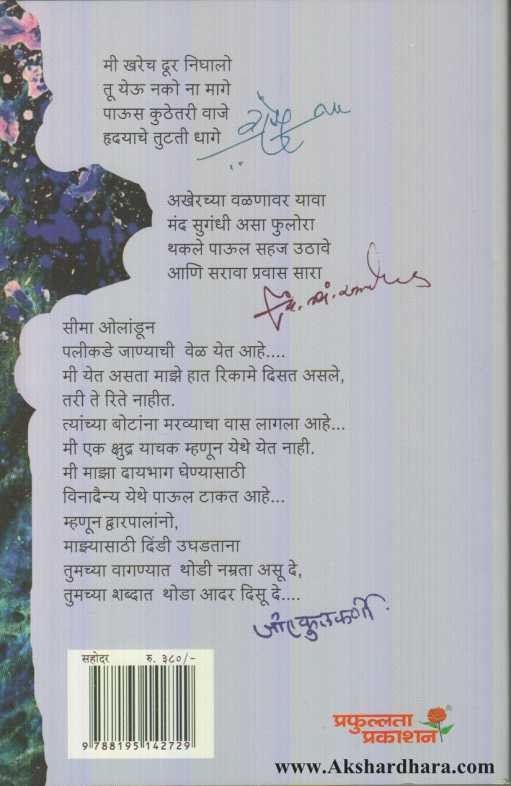 मी खरेच दूर निघालो
तू येऊ नको ना मागे
पाऊस कुठेतरी वाजे
हृदयाचे तुटती धागे
अखेरच्या वळणावर यावा
मंद सुगंधी असा फुलोरा
थकले पाऊल सहज उठावे
आणि सरावा प्रवास सारा
सीमा ओलांडून
पलीकडे जाण्याची वेळ येत आहे....
मी येत असता माझे हात रिकामे दिसत असले,
तरी ते रिते नाहीत.
त्यांच्या बोटांना मरव्याचा वास लागला आहे...
मी एक क्षुद्र याचक म्हणून येथे येत नाही.
मी माझा दायभाग घेण्यासाठी
विनादैन्य येथे पाऊल टाकत आहे...
म्हणून द्वारपालांनो,
माझ्यासाठी दिंडी उघडताना
तुमच्या वागण्यात थोडी नम्रता असू दे,
तुमच्या शब्दात थोडा आदर दिसू दे....
जीएकुलकर्णी
सहोदर रु. ३८०/-
9 788195 142729
प्रफुल्लता
प्रकाशन
www.Akshardhara.com